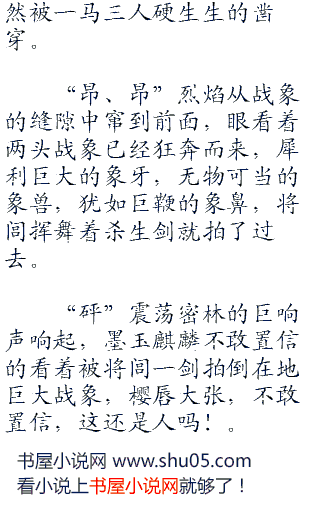 然被一马三人硬生生的凿
穿。
“昂、昂”烈焰从战象
的缝隙中窜到前面，眼看着
两头战象已经狂奔而来，犀
利巨大的象牙，无物可当的
象兽，犹如巨鞭的象鼻，将
闾挥舞着杀生剑就拍了过
去。
“砰”震荡密林的巨响
声响起，墨玉麒麟不敢置信
的看着被将闾一剑拍倒在地
巨大战象，樱唇大张，不敢
置信，这还是人吗！。
书屋小说网 www.shu05.com
看小说上书屋小说网就够了！